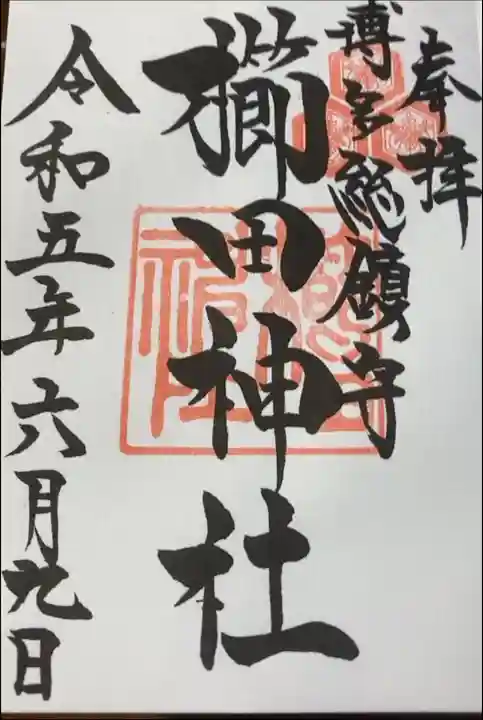 奉拝
博多総鎮守
櫛田神社
令和五年六月九日